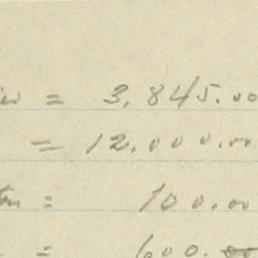 = 3,845.00
= 12,000.00
= 100.00
= 600.00